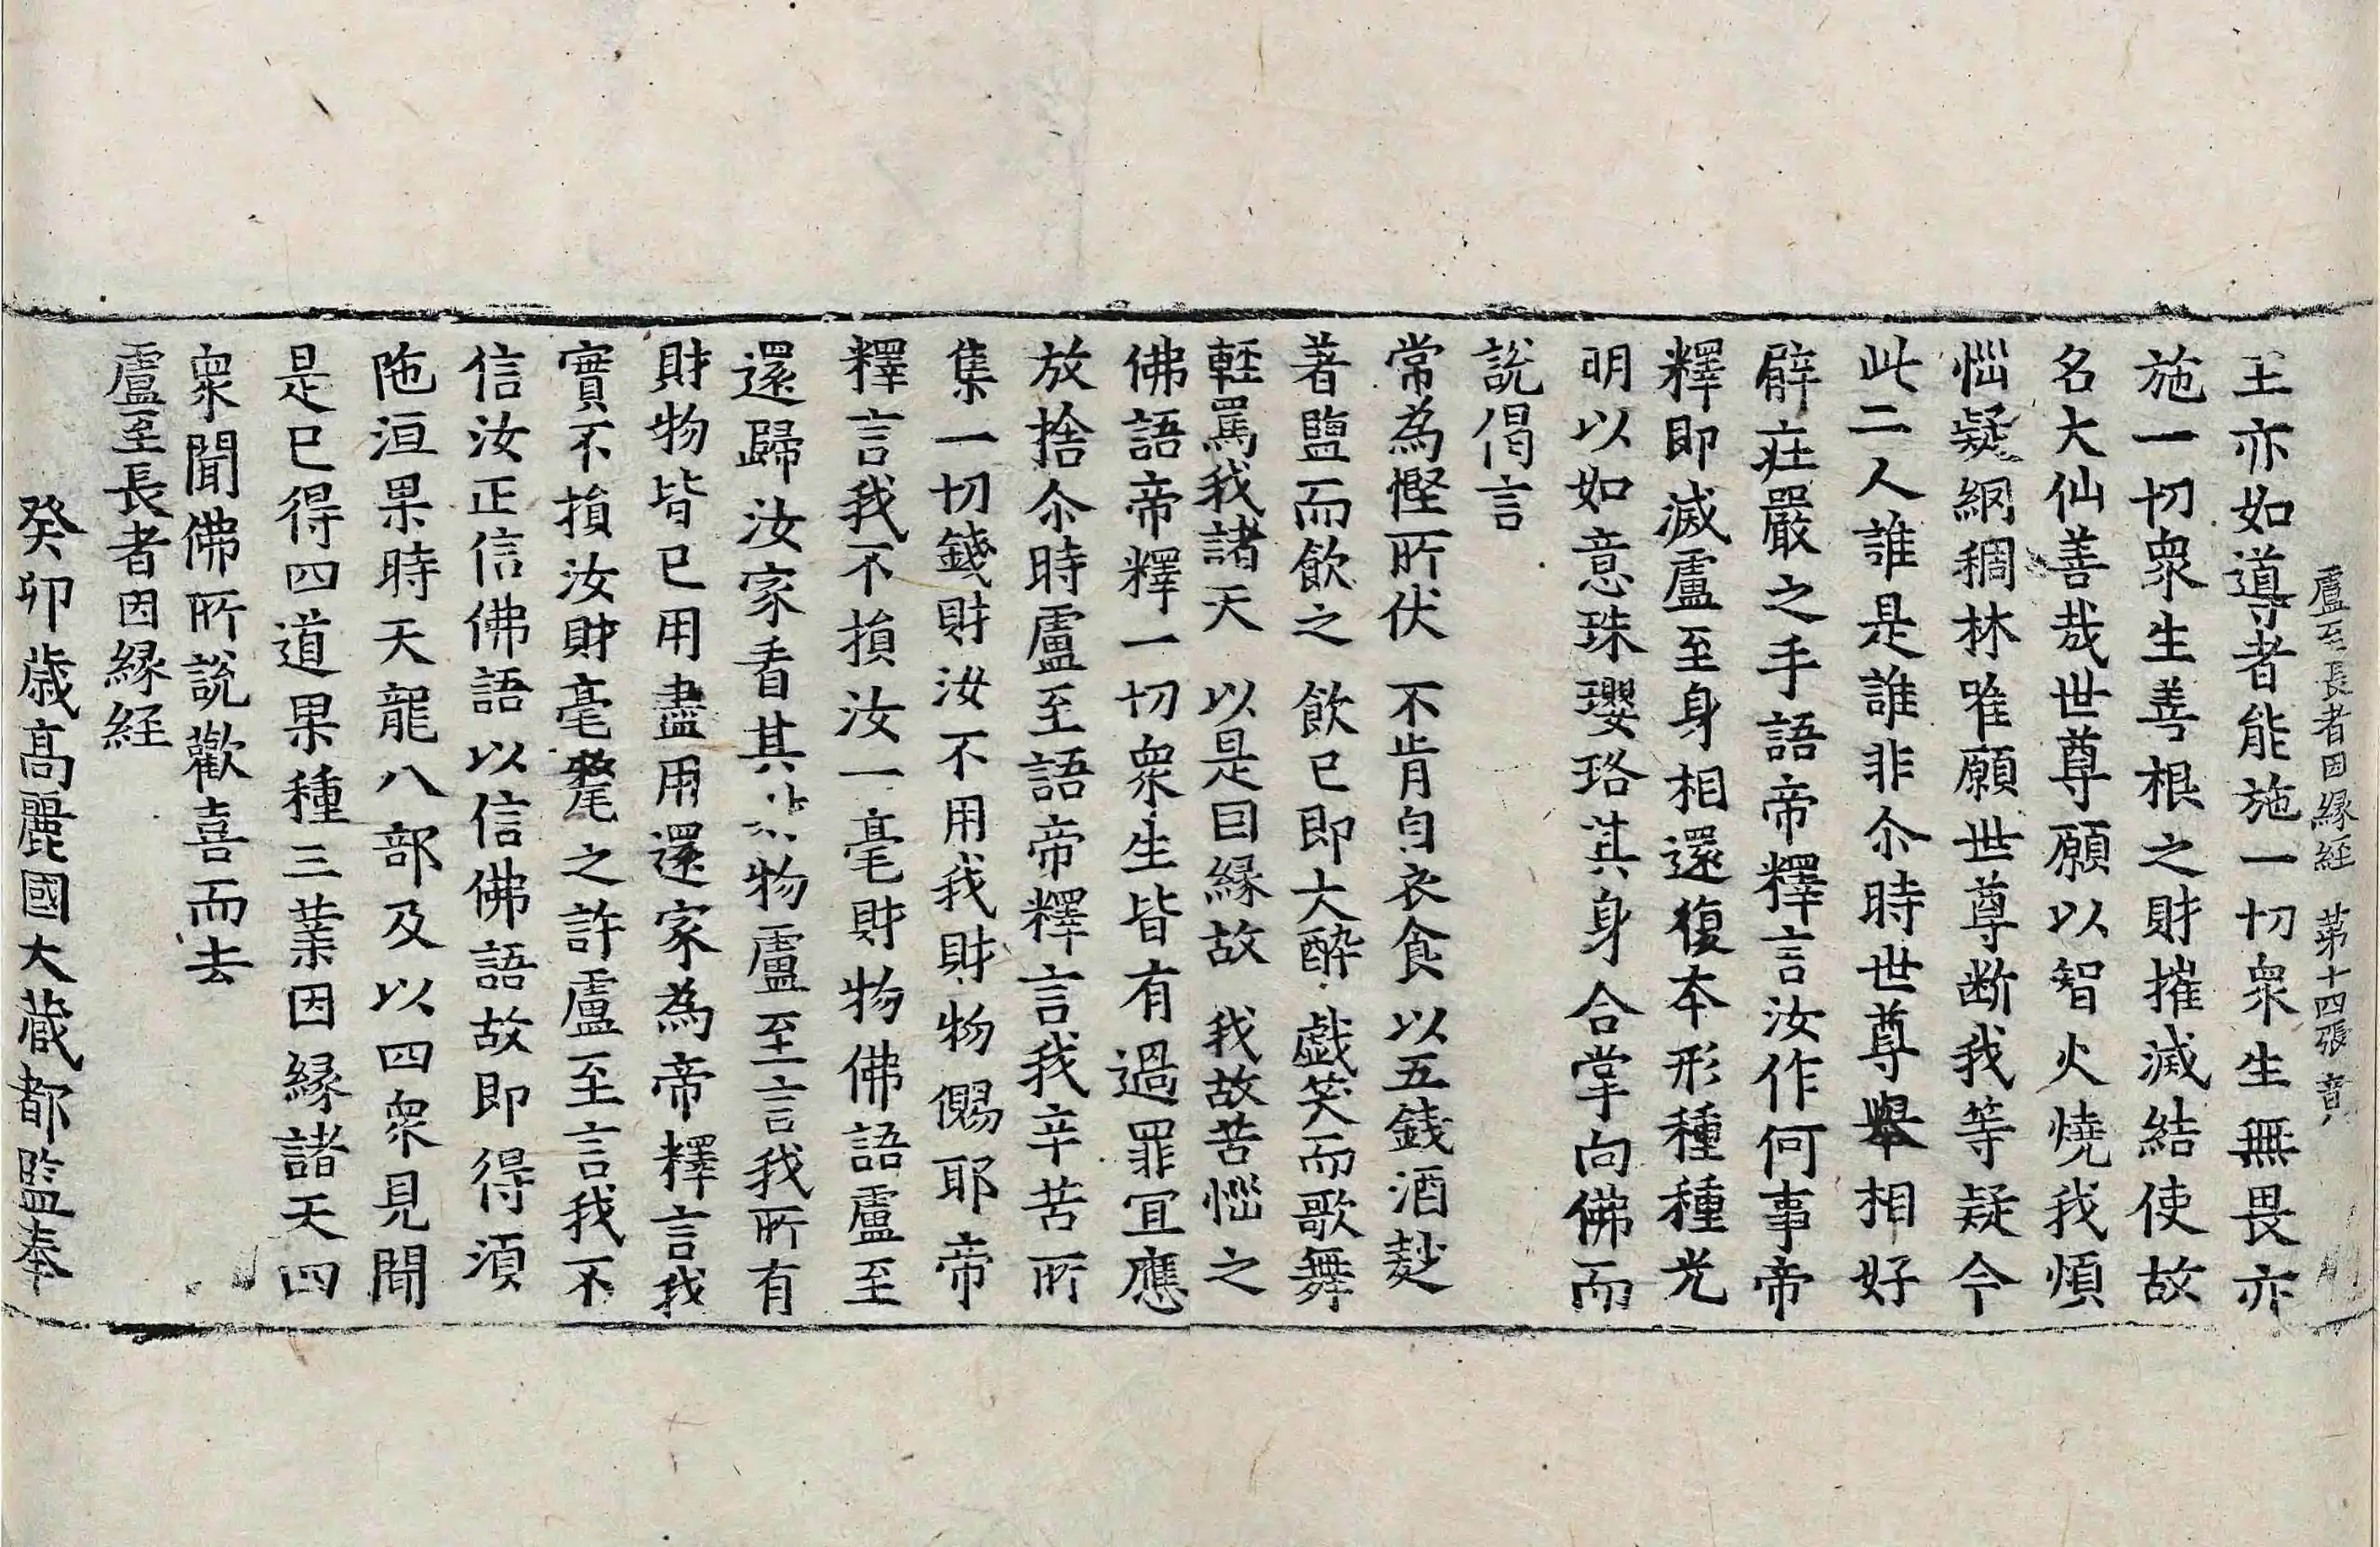 盧至長者因縁経 第十四張 音
王亦如導者能施一切衆生無畏亦
施一切衆生善根之財摧滅結使故
名大仙善㢤世尊願以智火燒我煩
惱疑網稠林唯願世尊断我等疑今
此二人誰是誰非尒時世尊舉相好
臂荘嚴之手語帝釋言汝作何事帝
釋即滅盧至身相還復本形種種光
明以如意珠瓔珞其身合掌向佛而
說偈言
常為慳所伏 不肯自衣食 以五錢酒麨
著鹽而飲之 飲已即大醉 戯笑而歌舞
輕罵我諸天 以是因縁故 我故苦惱之
佛語帝釋一切衆生皆有過罪宜應
放捨尒時盧至語帝釋言我辛苦所
集一切錢財汝不用我財物㑥耶帝
釋言我不損汝一毫財物佛語盧至
還歸汝家看其物盧至言我所有
財物皆已用盡用還家為帝釋言我
實不損汝財毫氂之許盧至言我不
信汝正信佛語以信佛語故即得須
陁洹果時天龍八部及以四衆見聞
是已得四道果種三業因縁諸天四
衆聞佛所說歡喜而去
盧至長者因縁経
癸卯歳高麗國大蔵都監奉